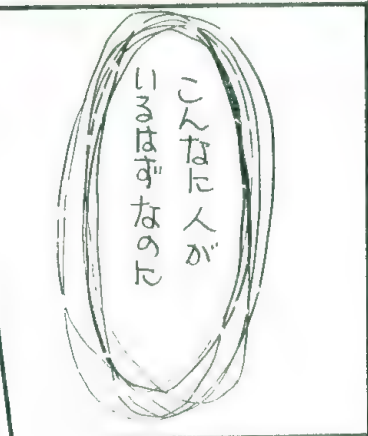 こんなに人が
いるはずなのに